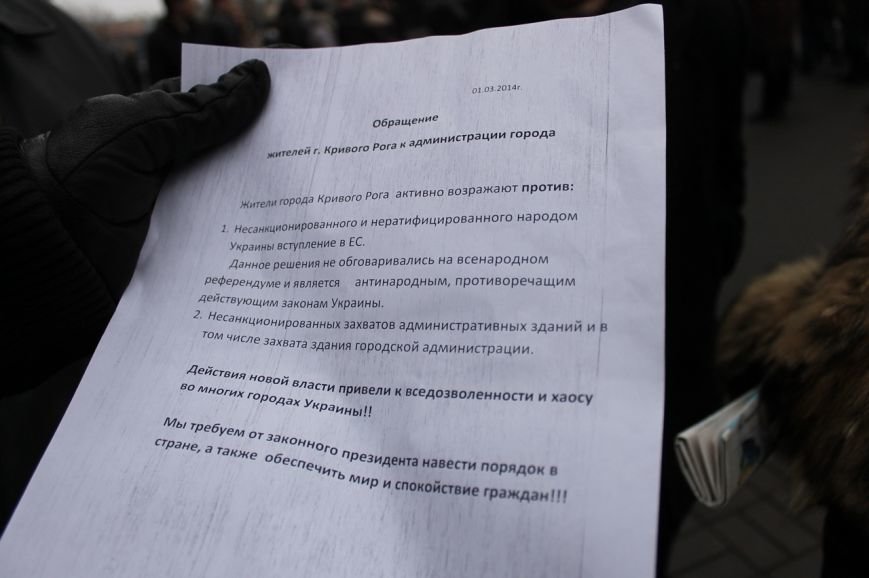 01.03.2014г.
Обращение
жителей г. Кривого Рога к администрации города
Жители города Кривого Рога активно возражают против:
1. Несанкционированного и нератифицированного народом
Украины вступление в ЕС.
Данное решения не обговаривались на всенародном
референдуме и является антинародным, противоречащим
действующим законам Украины.
2. Несанкционированных захватов административных зданий и в
том числе захвата здания городской администрации.
Действия новой власти привели к вседозволенности и хаосу
во многих городах Украины!!
Мы требуем от законного президента навести порядок в
стране, а также обеспечить мир и спокойствие граждан!!!